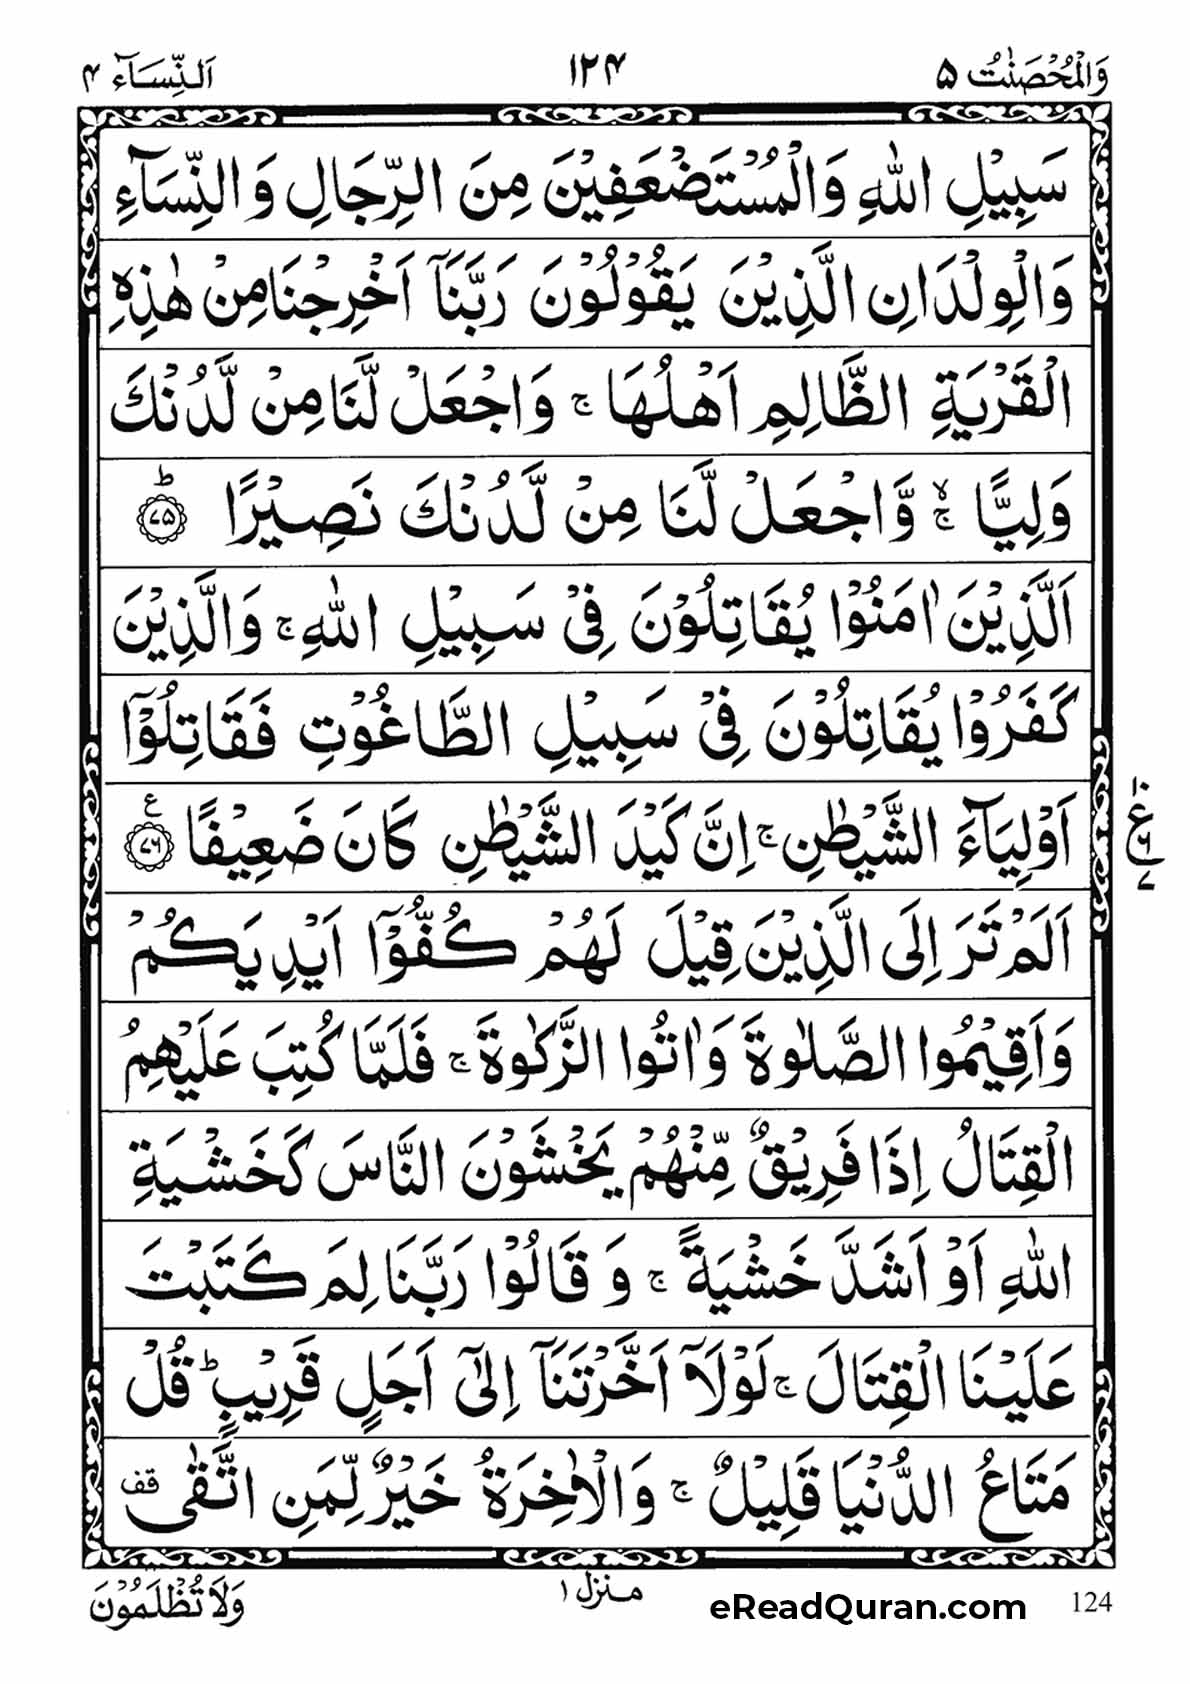 وَالْمُحْصَنٰتُ ۵ ۱۲۴ اَلنِّسَآء ۴
سَبِيْلِ اللّٰهِ وَالْمُسْتَضْعَفِيْنَ مِنَ الرِّجَالِ وَالنِّسَآءِ
وَالْوِلْدَانِ الَّذِيْنَ يَقُوْلُوْنَ رَبَّنَآ اَخْرِجْنَا مِنْ هٰذِهِ
الْقَرْيَةِ الظَّالِمِ اَهْلُهَا ۚ وَاجْعَلْ لَّنَا مِنْ لَّدُنْكَ
وَلِيًّا ۙۚ وَّاجْعَلْ لَّنَا مِنْ لَّدُنْكَ نَصِيْرًا ؕ ﴿۷۵﴾
اَلَّذِيْنَ اٰمَنُوْا يُقَاتِلُوْنَ فِيْ سَبِيْلِ اللّٰهِ ۚ وَالَّذِيْنَ
كَفَرُوْا يُقَاتِلُوْنَ فِيْ سَبِيْلِ الطَّاغُوْتِ فَقَاتِلُوْٓا
اَوْلِيَآءَ الشَّيْطٰنِ ۚ اِنَّ كَيْدَ الشَّيْطٰنِ كَانَ ضَعِيْفًا ﴿۷۶﴾ ع
۱۰ ع ۶ ۷
اَلَمْ تَرَ اِلَى الَّذِيْنَ قِيْلَ لَهُمْ كُفُّوْٓا اَيْدِيَكُمْ
وَاَقِيْمُوا الصَّلٰوةَ وَاٰتُوا الزَّكٰوةَ ۚ فَلَمَّا كُتِبَ عَلَيْهِمُ
الْقِتَالُ اِذَا فَرِيْقٌ مِّنْهُمْ يَخْشَوْنَ النَّاسَ كَخَشْيَةِ
اللّٰهِ اَوْ اَشَدَّ خَشْيَةً ۚ وَقَالُوْا رَبَّنَا لِمَ كَتَبْتَ
عَلَيْنَا الْقِتَالَ ۚ لَوْلَآ اَخَّرْتَنَآ اِلٰٓى اَجَلٍ قَرِيْبٍ ؕ قُلْ
مَتَاعُ الدُّنْيَا قَلِيْلٌ ۚ وَالْاٰخِرَةُ خَيْرٌ لِّمَنِ اتَّقٰى قف
وَلَا تُظْلَمُوْنَ منزل ۱ eReadQuran.com 124